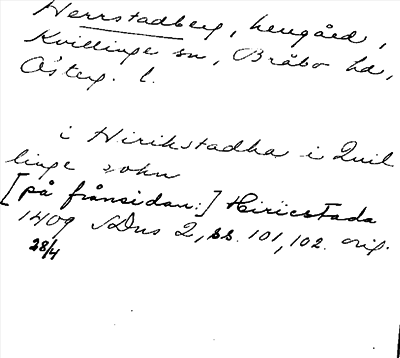 Herrstadberg, herrgård,
Kvillinge sn, Bråbo hd,
Österg. l.
i Hirikstadha i Quil
linge sokn
[på frånsidan:] Hiricstada
1409 28/4 SDns 2, ss. 101, 102. orig.